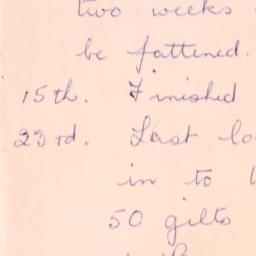 two weeks
be fattened.
15th. Finished
23rd. Last lo
in to
50 gilts